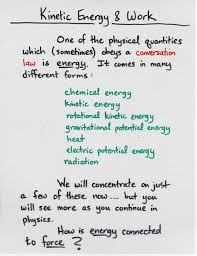 Kinetic Energy & Work
One of the physical quantities
which (sometimes) obeys a conservation
law is energy. It comes in many
different forms:
chemical energy
kinetic energy
rotational kinetic energy
gravitational potential energy
heat
electric potential energy
radiation
We will concentrate on just
a few of these now.... but you
will see more as you continue in
physics.
How is energy connected
to force?